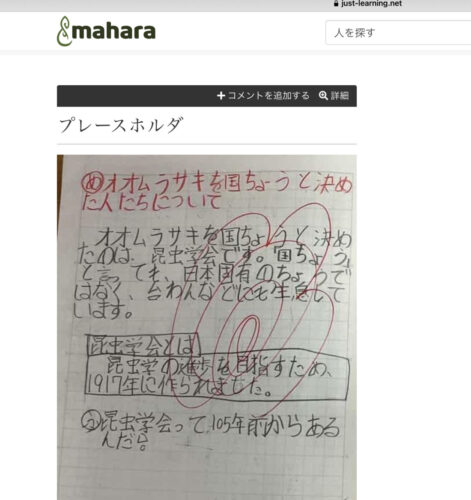 just-learning.net
mahara
人を探す
コメントを追加する 詳細
プレースホルダ
めオオムラサキを国ちょうと決め
た人たちについて
オオムラサキを国ちょうと決め
たのは、昆虫学会です。「国ちょう」
と言っても、日本固有のちょうで
はなく、台わんなどにも生息して
います。
昆虫学会とは
昆虫学の進歩を目指すため、
1917年に作られました。
昆虫学会って、105年前からある
んだ。